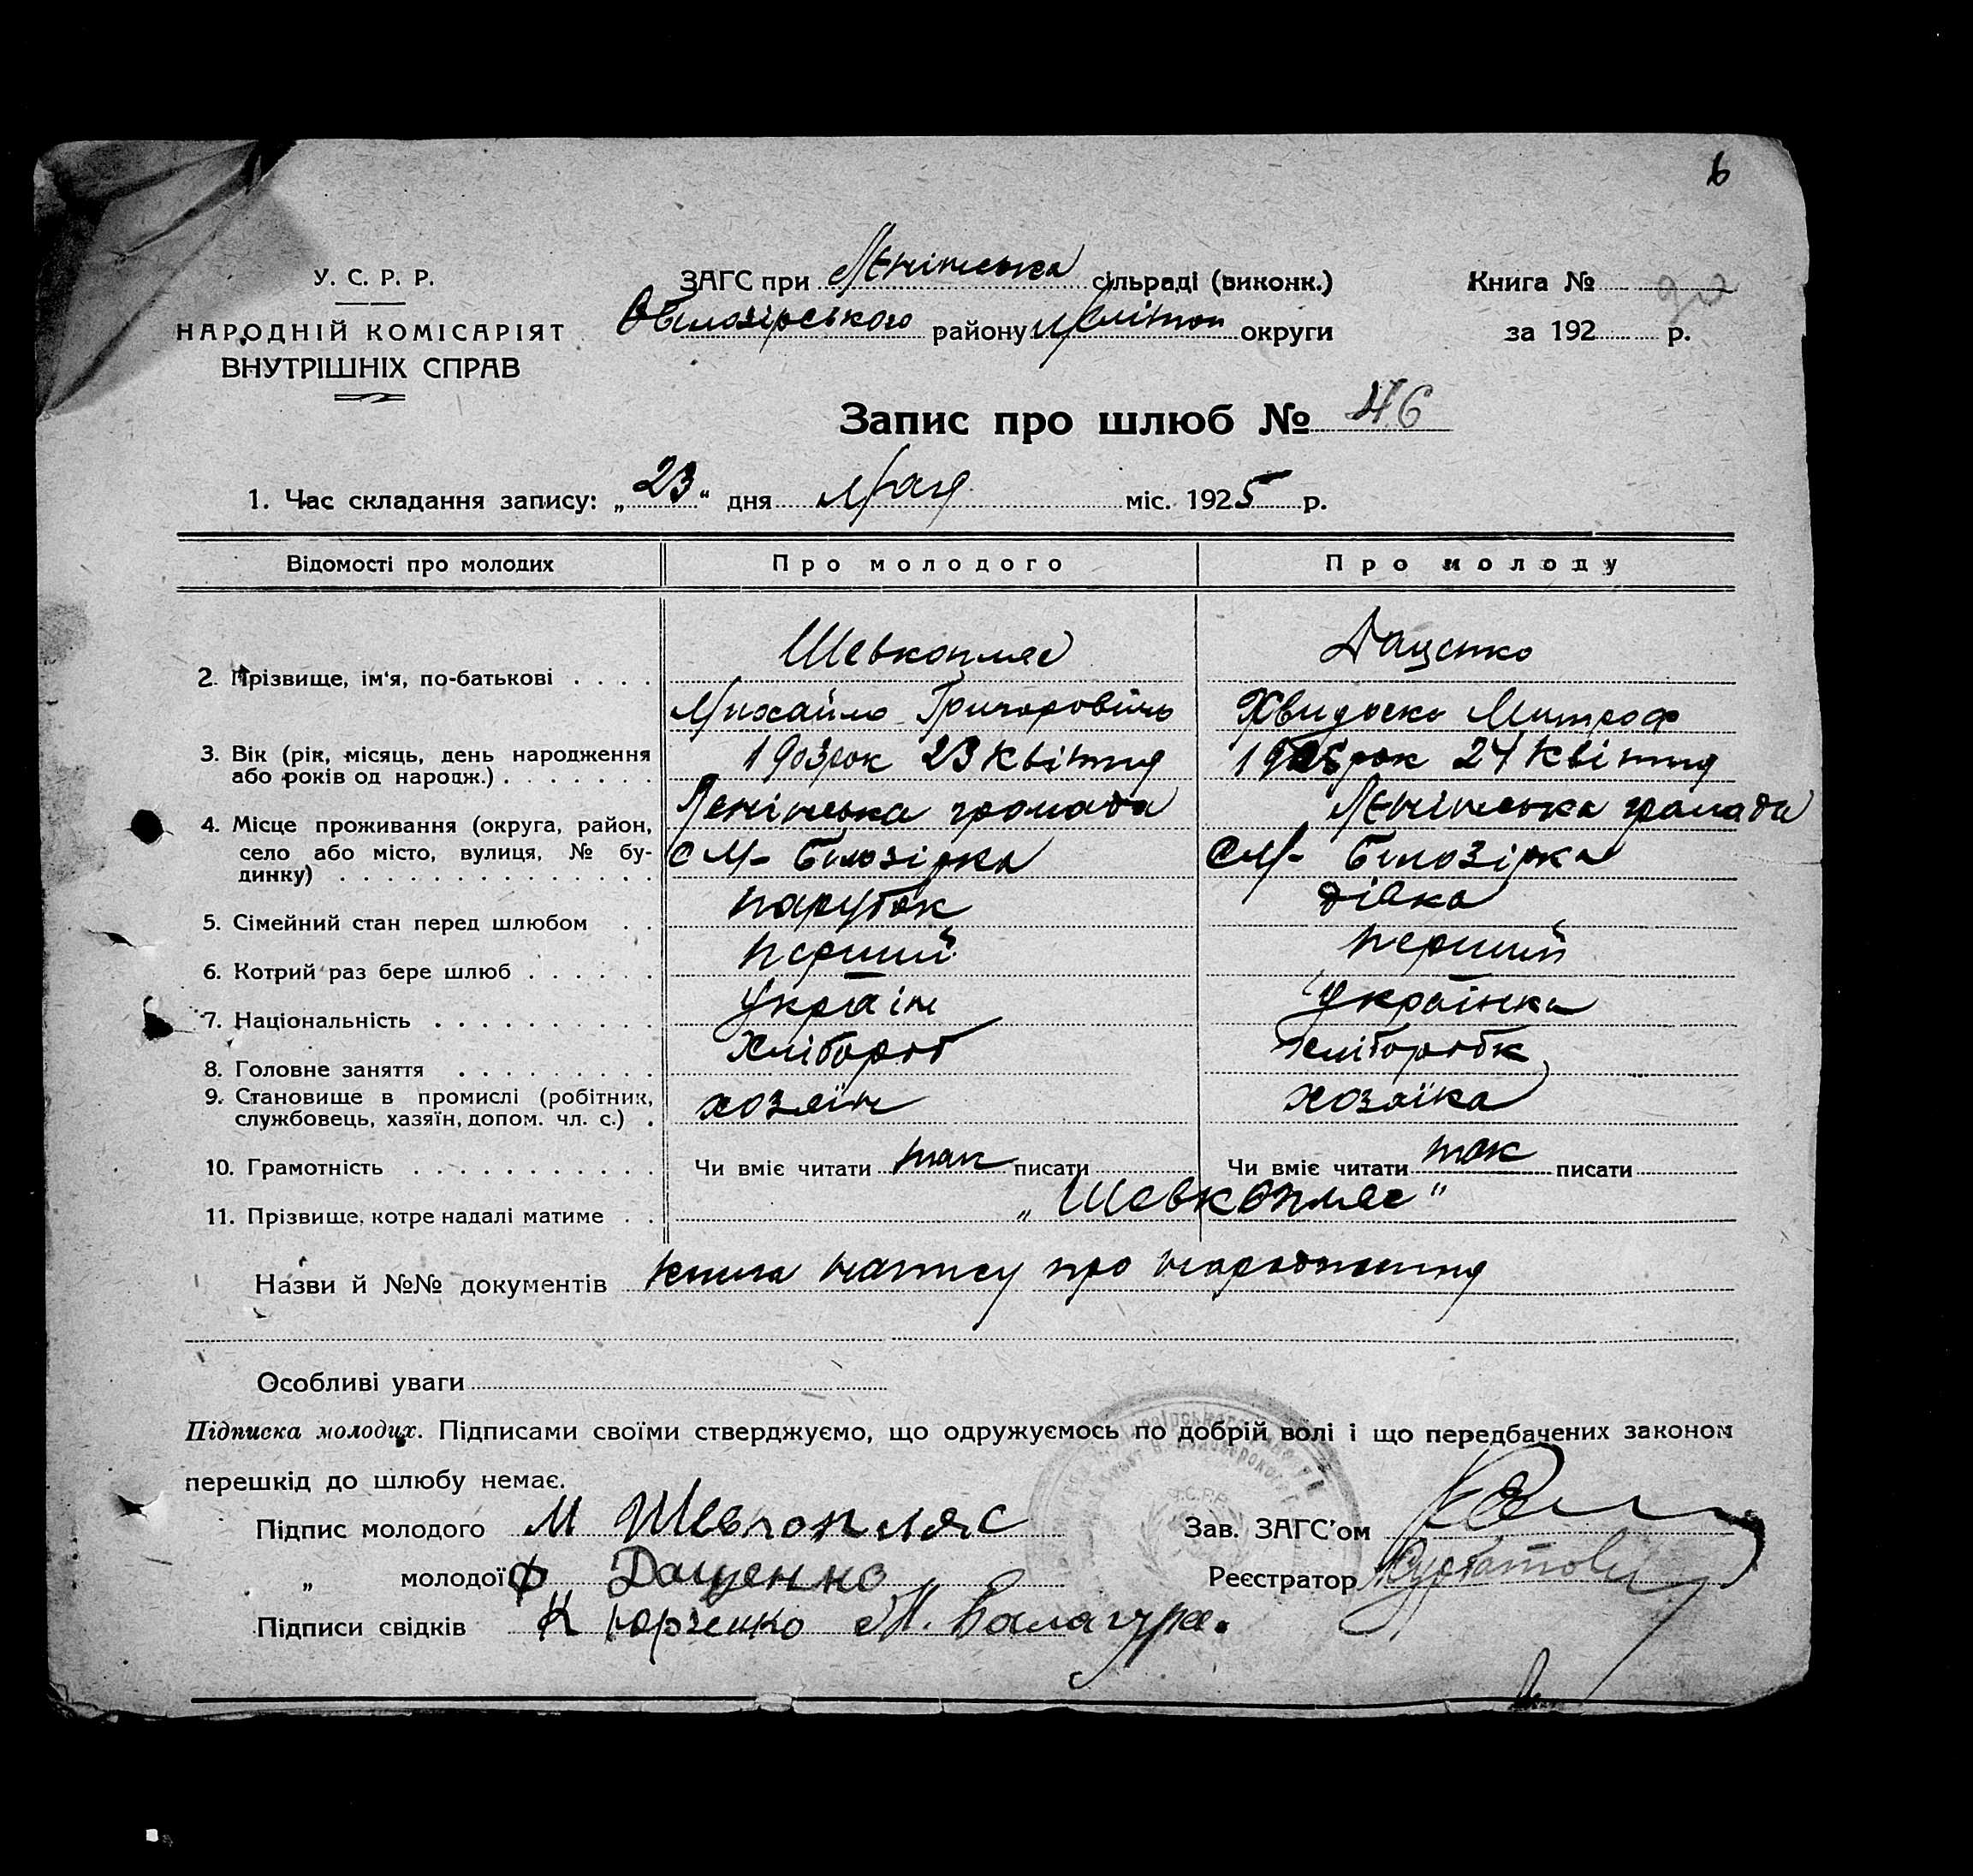 6
У. С. Р. Р.
НАРОДНІЙ КОМІСАРІЯТ
ВНУТРІШНІХ СПРАВ
ЗАГС при Ленінська сільраді (виконк.)
Білозірського району Меліт округи
Книга №
за 192 р.
Запис про шлюб № 46
1. Час складання запису: „23“ дня Мая міс. 1925 р.
Відомості про молодих Про молодого Про молоду
2. Прізвище, ім'я, по-батькові . . . . Шевкопляс Даценко
Михайло Григоровічь Хвидоска Митроф
3. Вік (рік, місяць, день народження
або років од народж.) . . . . . . . 1903 рок 23 Квітня рок 24 Квітня
4. Місце проживання (округа, район,
село або місто, вулиця, № бу-
динку) . . . . . . . . . . . . . .
Ленінська громада Ленінська громада
см- Білозірка см- Білозірка
5. Сімейний стан перед шлюбом . . парубок дівка
6. Котрий раз бере шлюб . . . . . . перший перший
7. Національність . . . . . . . . . . Українь Українка
8. Головне заняття . . . . . . . . . Хлібороб хліборобк
9. Становище в промислі (робітник,
службовець, хазяїн, допом. чл. с.) . хозяїн хозяїка
10. Грамотність . . . . . . . . . . . Чи вміє читати так писати Чи вміє читати так писати
11. Прізвище, котре надалі матиме . . „Шевкопляс"
Назви й №№ документів книга напису про народження
Особливі уваги
Підписка молодих. Підписами своїми стверджуємо, що одружуємось по добрій волі і що передбачених законом
перешкід до шлюбу немає.
Підпис молодого М Шевкопляс Зав. ЗАГС'ом
„ молодої Ф Даценко Реєстратор
Підписи свідків К Юрченко М. Балагура.
У.С.Р.Р.